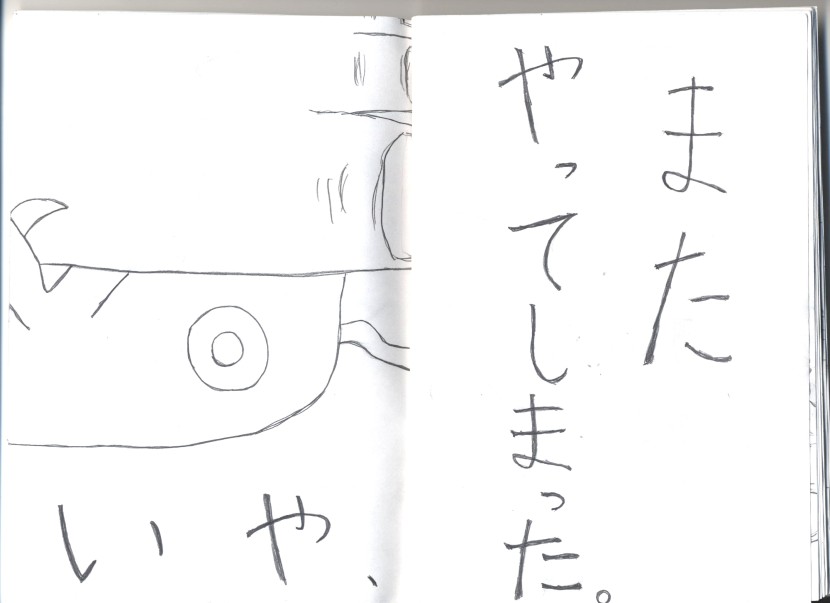 また
やってしまった。
いや、